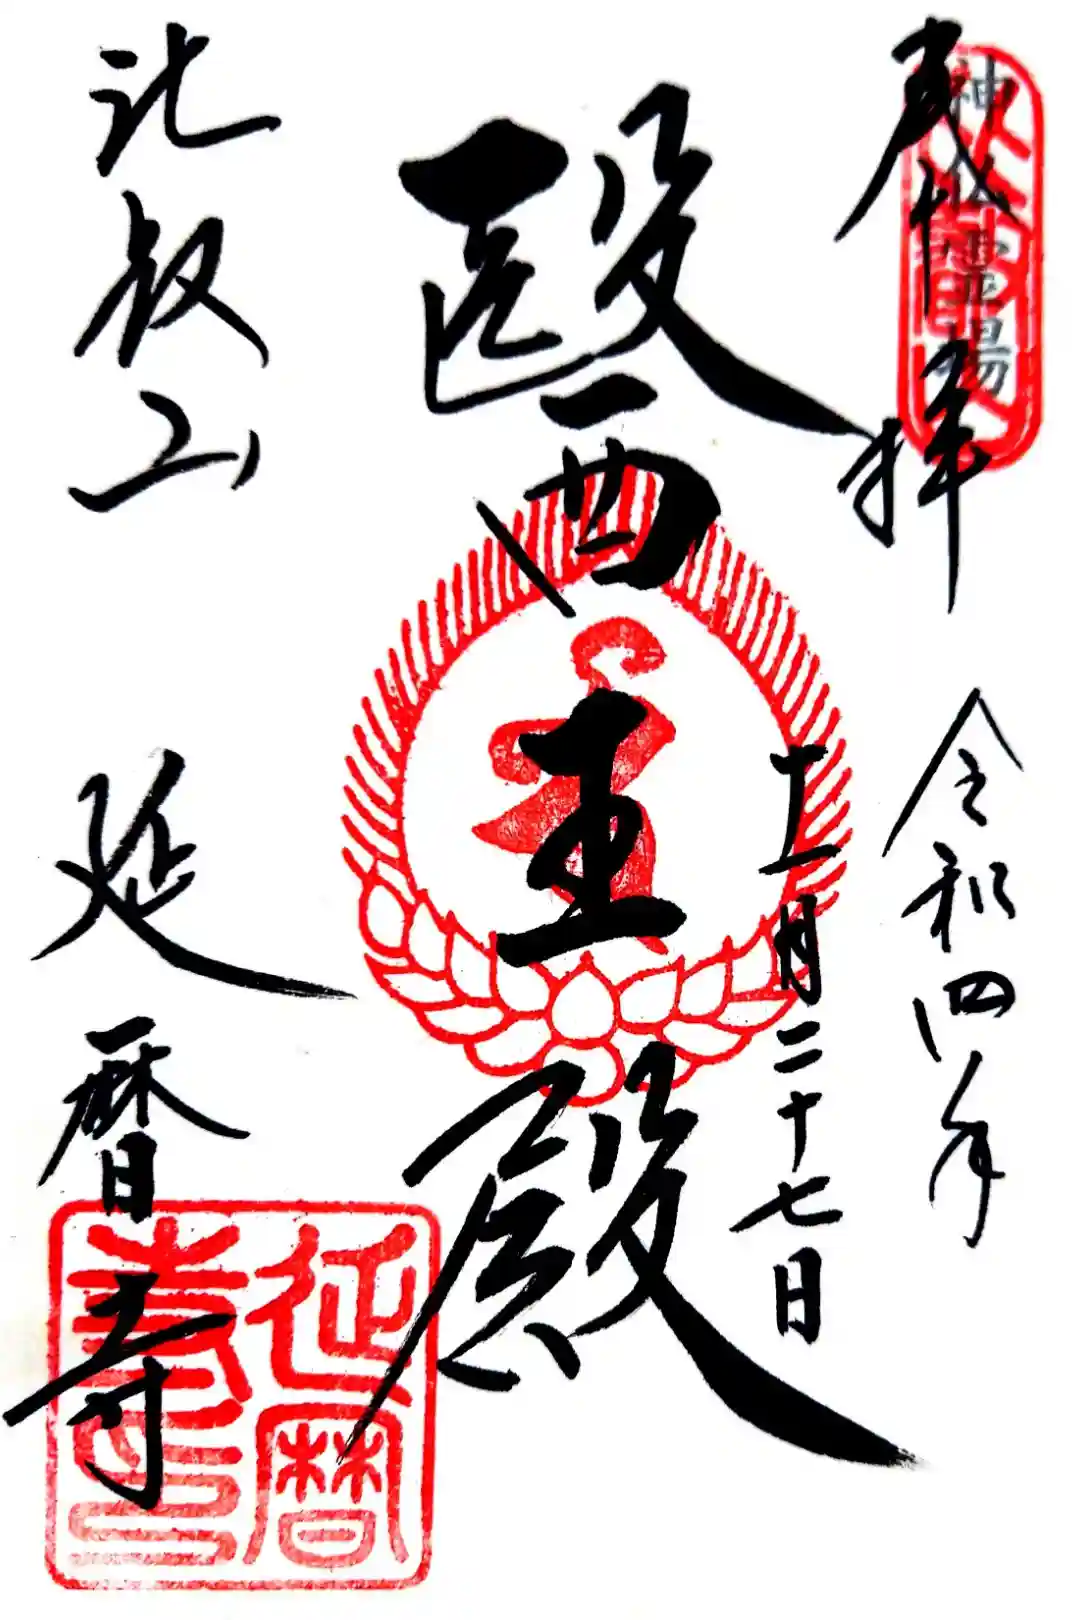 奉拝
神仏霊場
令和四年
十一月二十七日
醫王殿
比叡山
延暦寺
延暦寺印